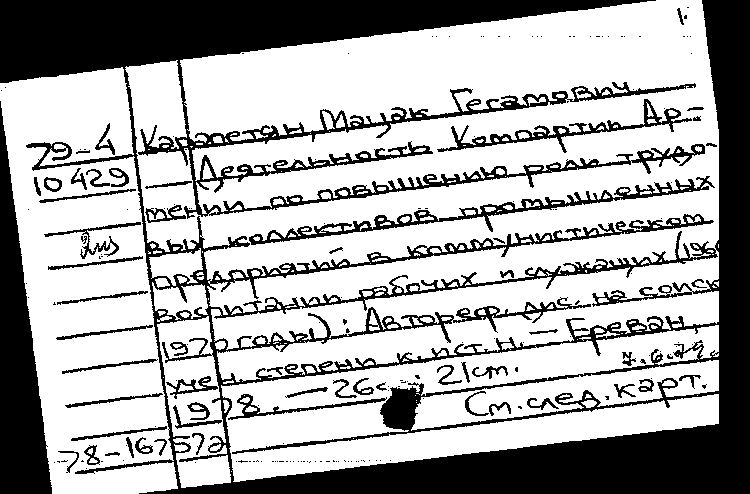 1.
79-4 Карапетян, Мацак Гегамович.
10429 Деятельность Компартии Ар-
мении по повышению роли трудо-
вых коллективов промышленных
предприятий в коммунистическом
воспитании рабочих и служащих (196
1970 годы) : Автореф. дис. на соиск.
учен. степени к. ист. н. — Ереван,
1978. — 26с. ; 21см. 7.6.79.
См. след. карт.
78-167572